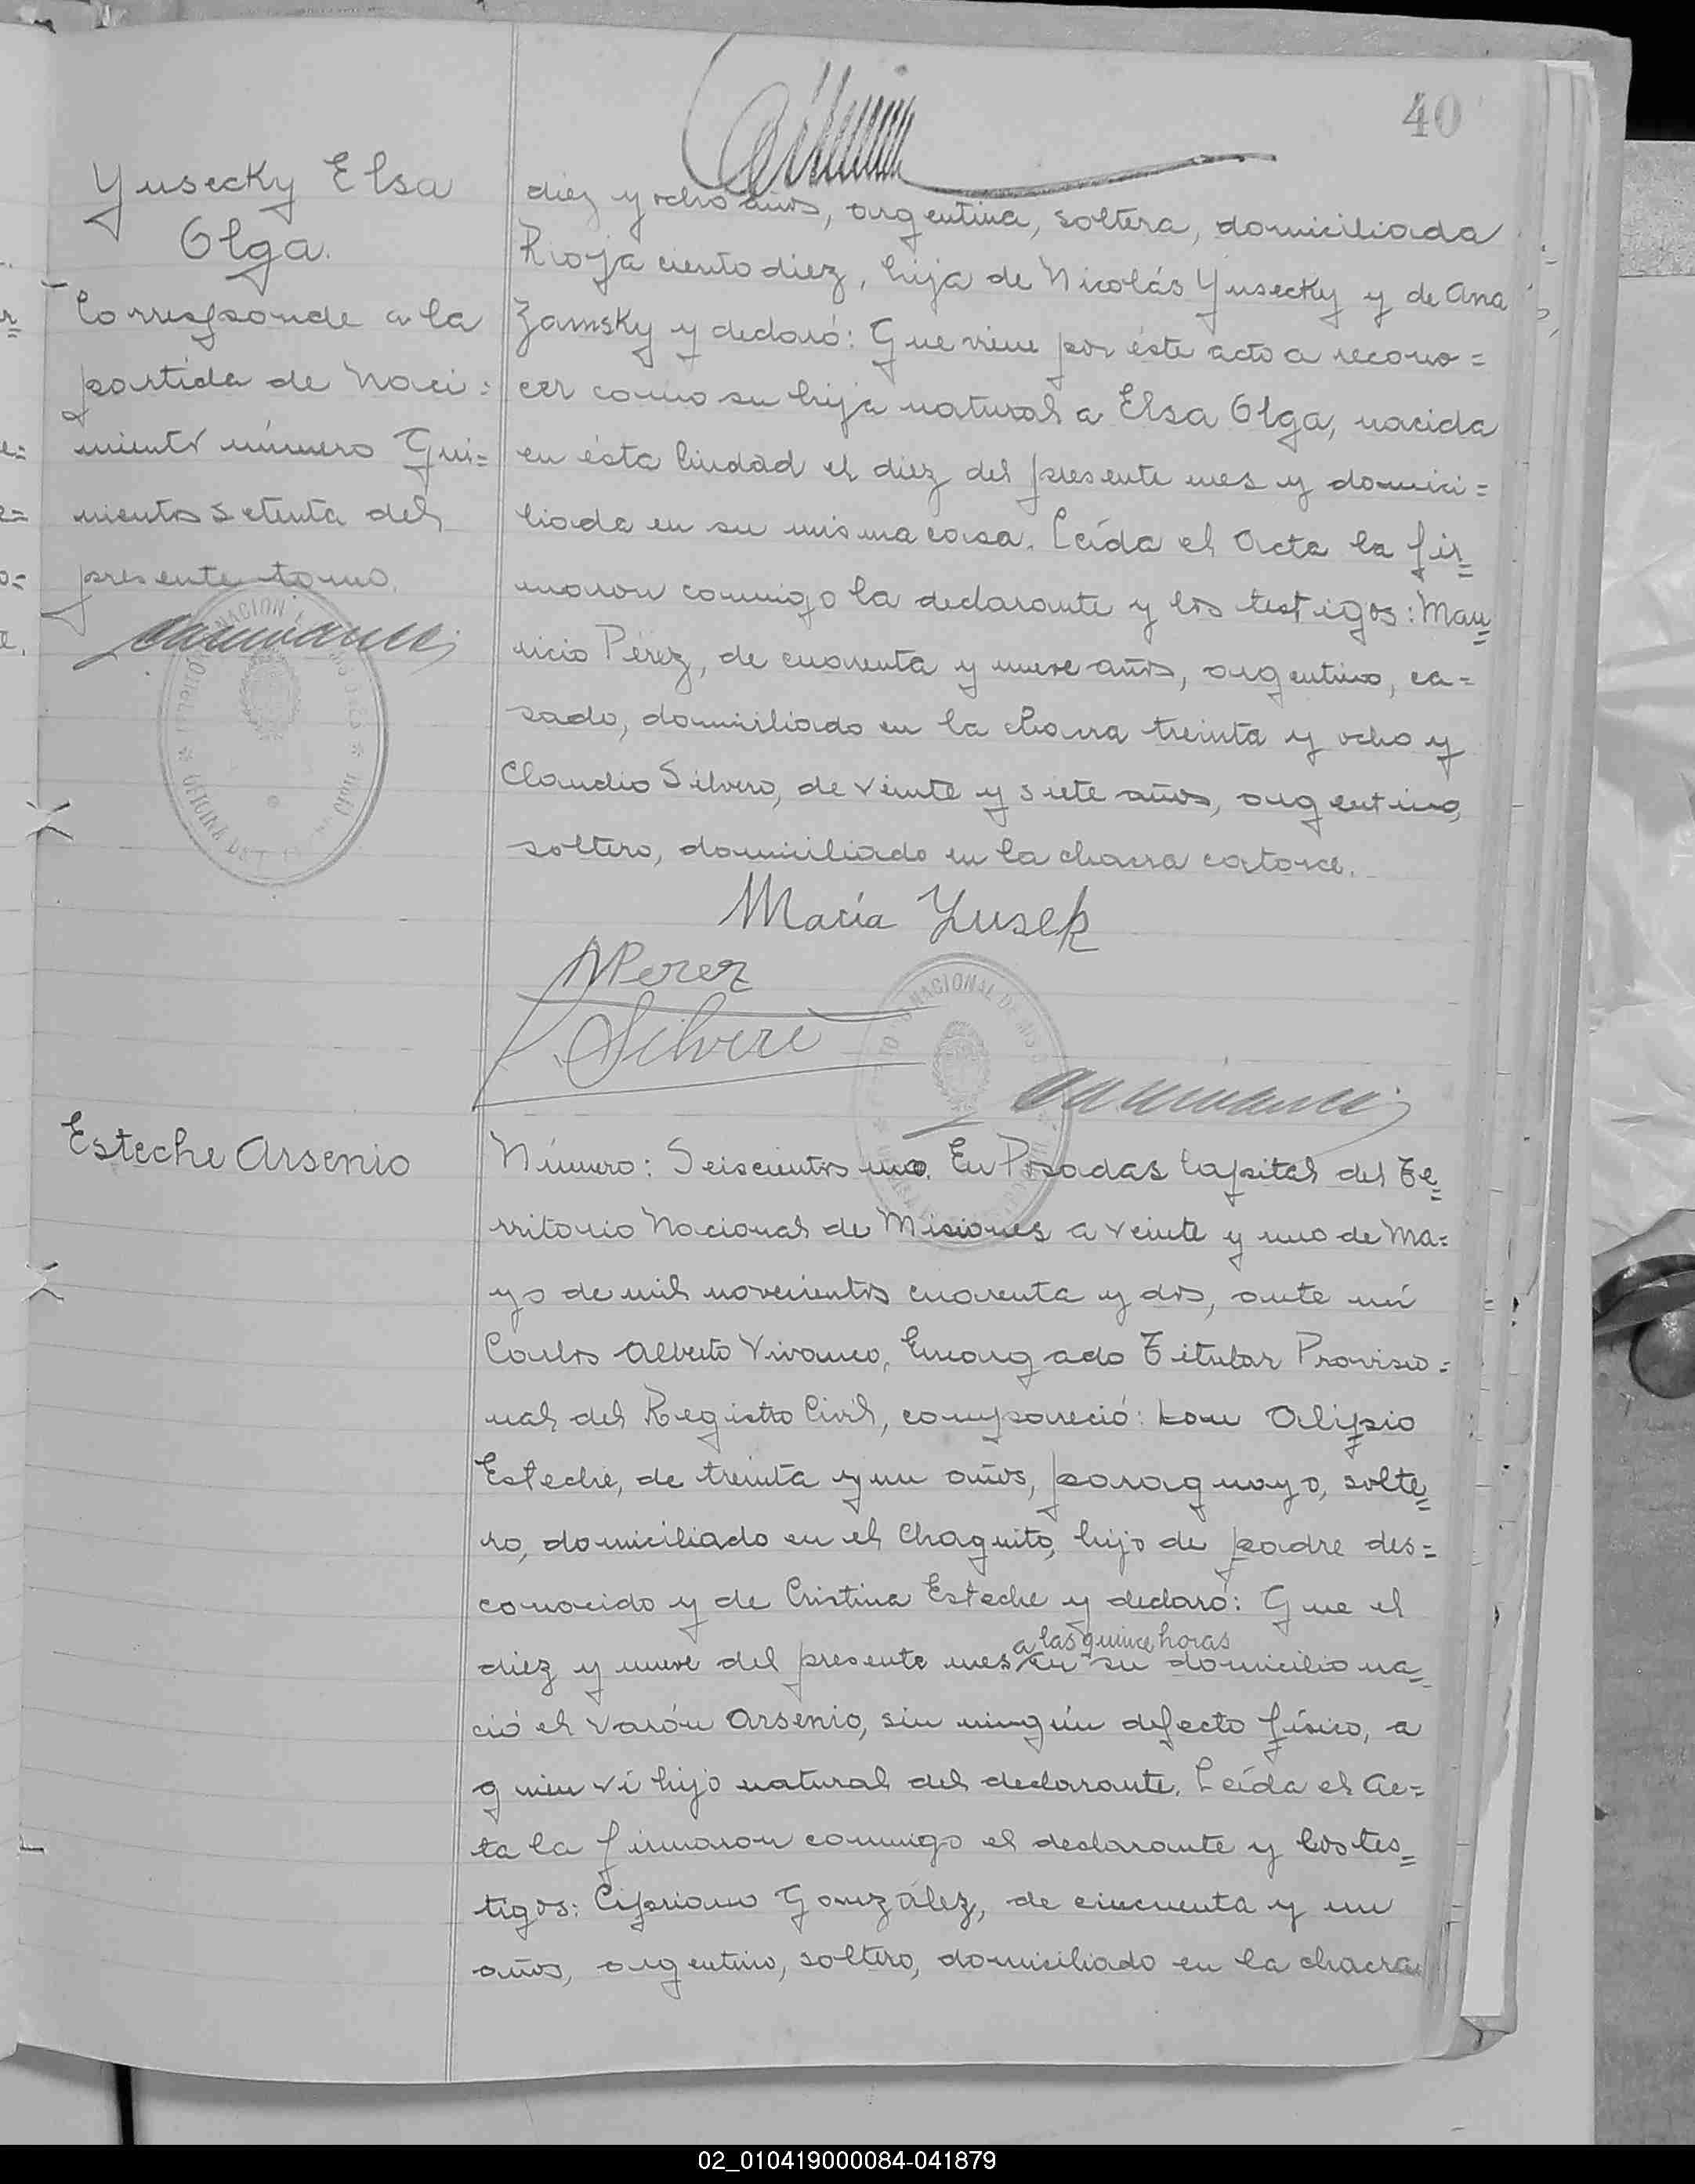 40
Yusecky Elsa
Olga.
Corresponde a la
partida de Naci=
miento número Qui=
nientos setenta del
presente tomo.
diez y ocho años, argentina, soltera, domiciliada
Rioja ciento diez, hija de Nicolás Yusecky y de Ana
Zamsky y declaró: Que viene por éste acto a recono=
cer como su hija natural a Elsa Olga, nacida
en ésta Ciudad el diez del presente mes y domici=
liada en su misma casa. Leída el Acta la fir=
maron conmigo la declarante y los testigos: Mau=
ricio Pérez, de cuarenta y nueve años, argentino, ca=
sado, domiciliado en la chacra treinta y ocho y
Claudio Silvero, de veinte y siete años, argentino,
soltero, domiciliado en la chacra catorce.
María Yusek
MPerez
Silvero
NACIONAL DE MIS
Esteche Arsenio
Número: Seiscientos uno. En Posadas Capital del Te=
rritorio Nacional de Misiones a veinte y uno de Ma=
yo de mil novecientos cuarenta y dos, ante mí
Carlos Alberto Vivanco, Encargado Titular Provisio=
nal del Registro Civil, compareció: Don Alipio
Esteche, de treinta y un años, paraguayo, solte=
ro, domiciliado en el Chaquito, hijo de padre des=
conocido y de Cristina Esteche y declaró: Que el
a las quince horas
diez y nueve del presente mes en su domicilio na=
ció el varón Arsenio, sin ningún defecto físico, a
quien ví hijo natural del declarante. Leída el Ac=
ta la firmaron conmigo el declarante y los tes=
tigos: Cipriano González, de cincuenta y un
años, argentino, soltero, domiciliado en la chacra
02_010419000084-041879